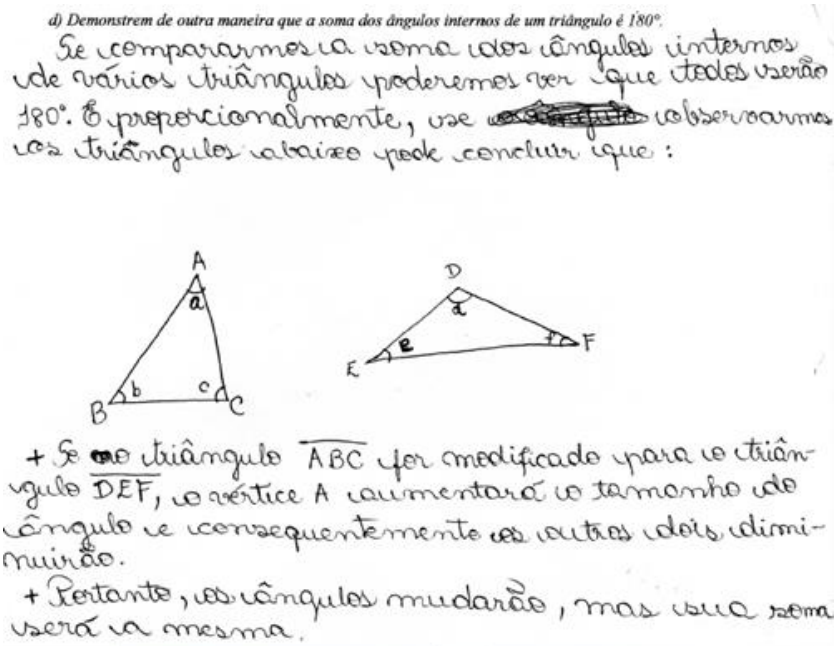 d) Demonstrem de outra maneira que a soma dos ângulos internos de um triângulo é 180°.
Se compararmos a soma dos ângulos internos
de vários triângulos poderemos ver que todos serão
180°. E proporcionalmente, se observarmos
os triângulos abaixo pode concluir que :
A
D
a
d
E e f F
b c
B C
+ Se o triângulo ABC for modificado para o triân-
gulo DEF, o vértice A aumentará o tamanho do
ângulo e consequentemente os outros dois dimi-
nuirão.
+ Portanto, os ângulos mudarão, mas sua soma
será a mesma.